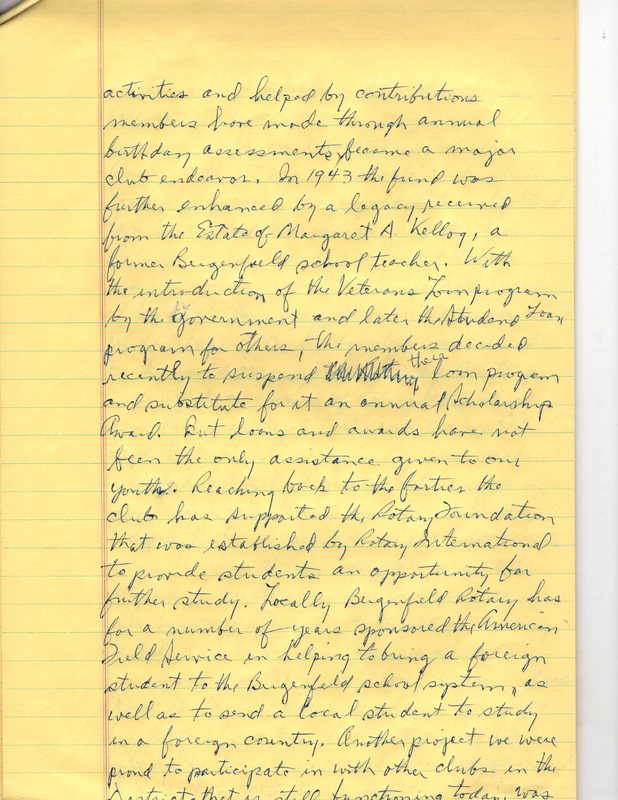 activities and helped by contributions
members have made through annual
birthday assessments, became a major
club endeavor. In 1943 the fund was
further enhanced by a legacy received
from the Estate of Margaret A. Kellog, a
former Bergenfield school teacher. With
the introduction of the Veterans Loan program
by the government and later the Student Loan
program for others, the members decided
recently to suspend their loan program
and substitute for it an annual Scholarship
Award. But loans and awards have not
been the only assistance given to our
youth. Reaching back to the forties the
club has supported the Rotary Foundation
that was established by Rotary International
to provide students an opportunity for
further study. Locally Bergenfield Rotary has
for a number of years sponsored the American
Field Service in helping to bring a foreign
student to the Bergenfield school system, as
well as to send a local student to study
in a foreign country. Another project we were
proud to participate in with other clubs in the
District that is still functioning today was